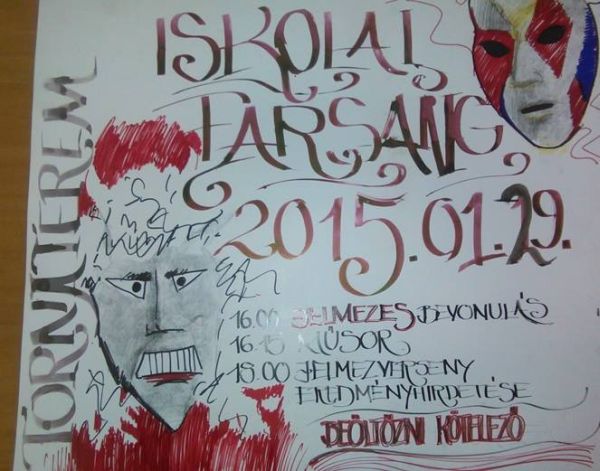 ISKOLAI
FARSANG
2015.01.29.
TORNATEREM
16.00 JELMEZES BEVONULÁS
16.15 MŰSOR
18.00 JELMEZVERSENY
EREDMÉNYHIRDETÉSE
BEÖLTÖZNI KÖTELEZŐ